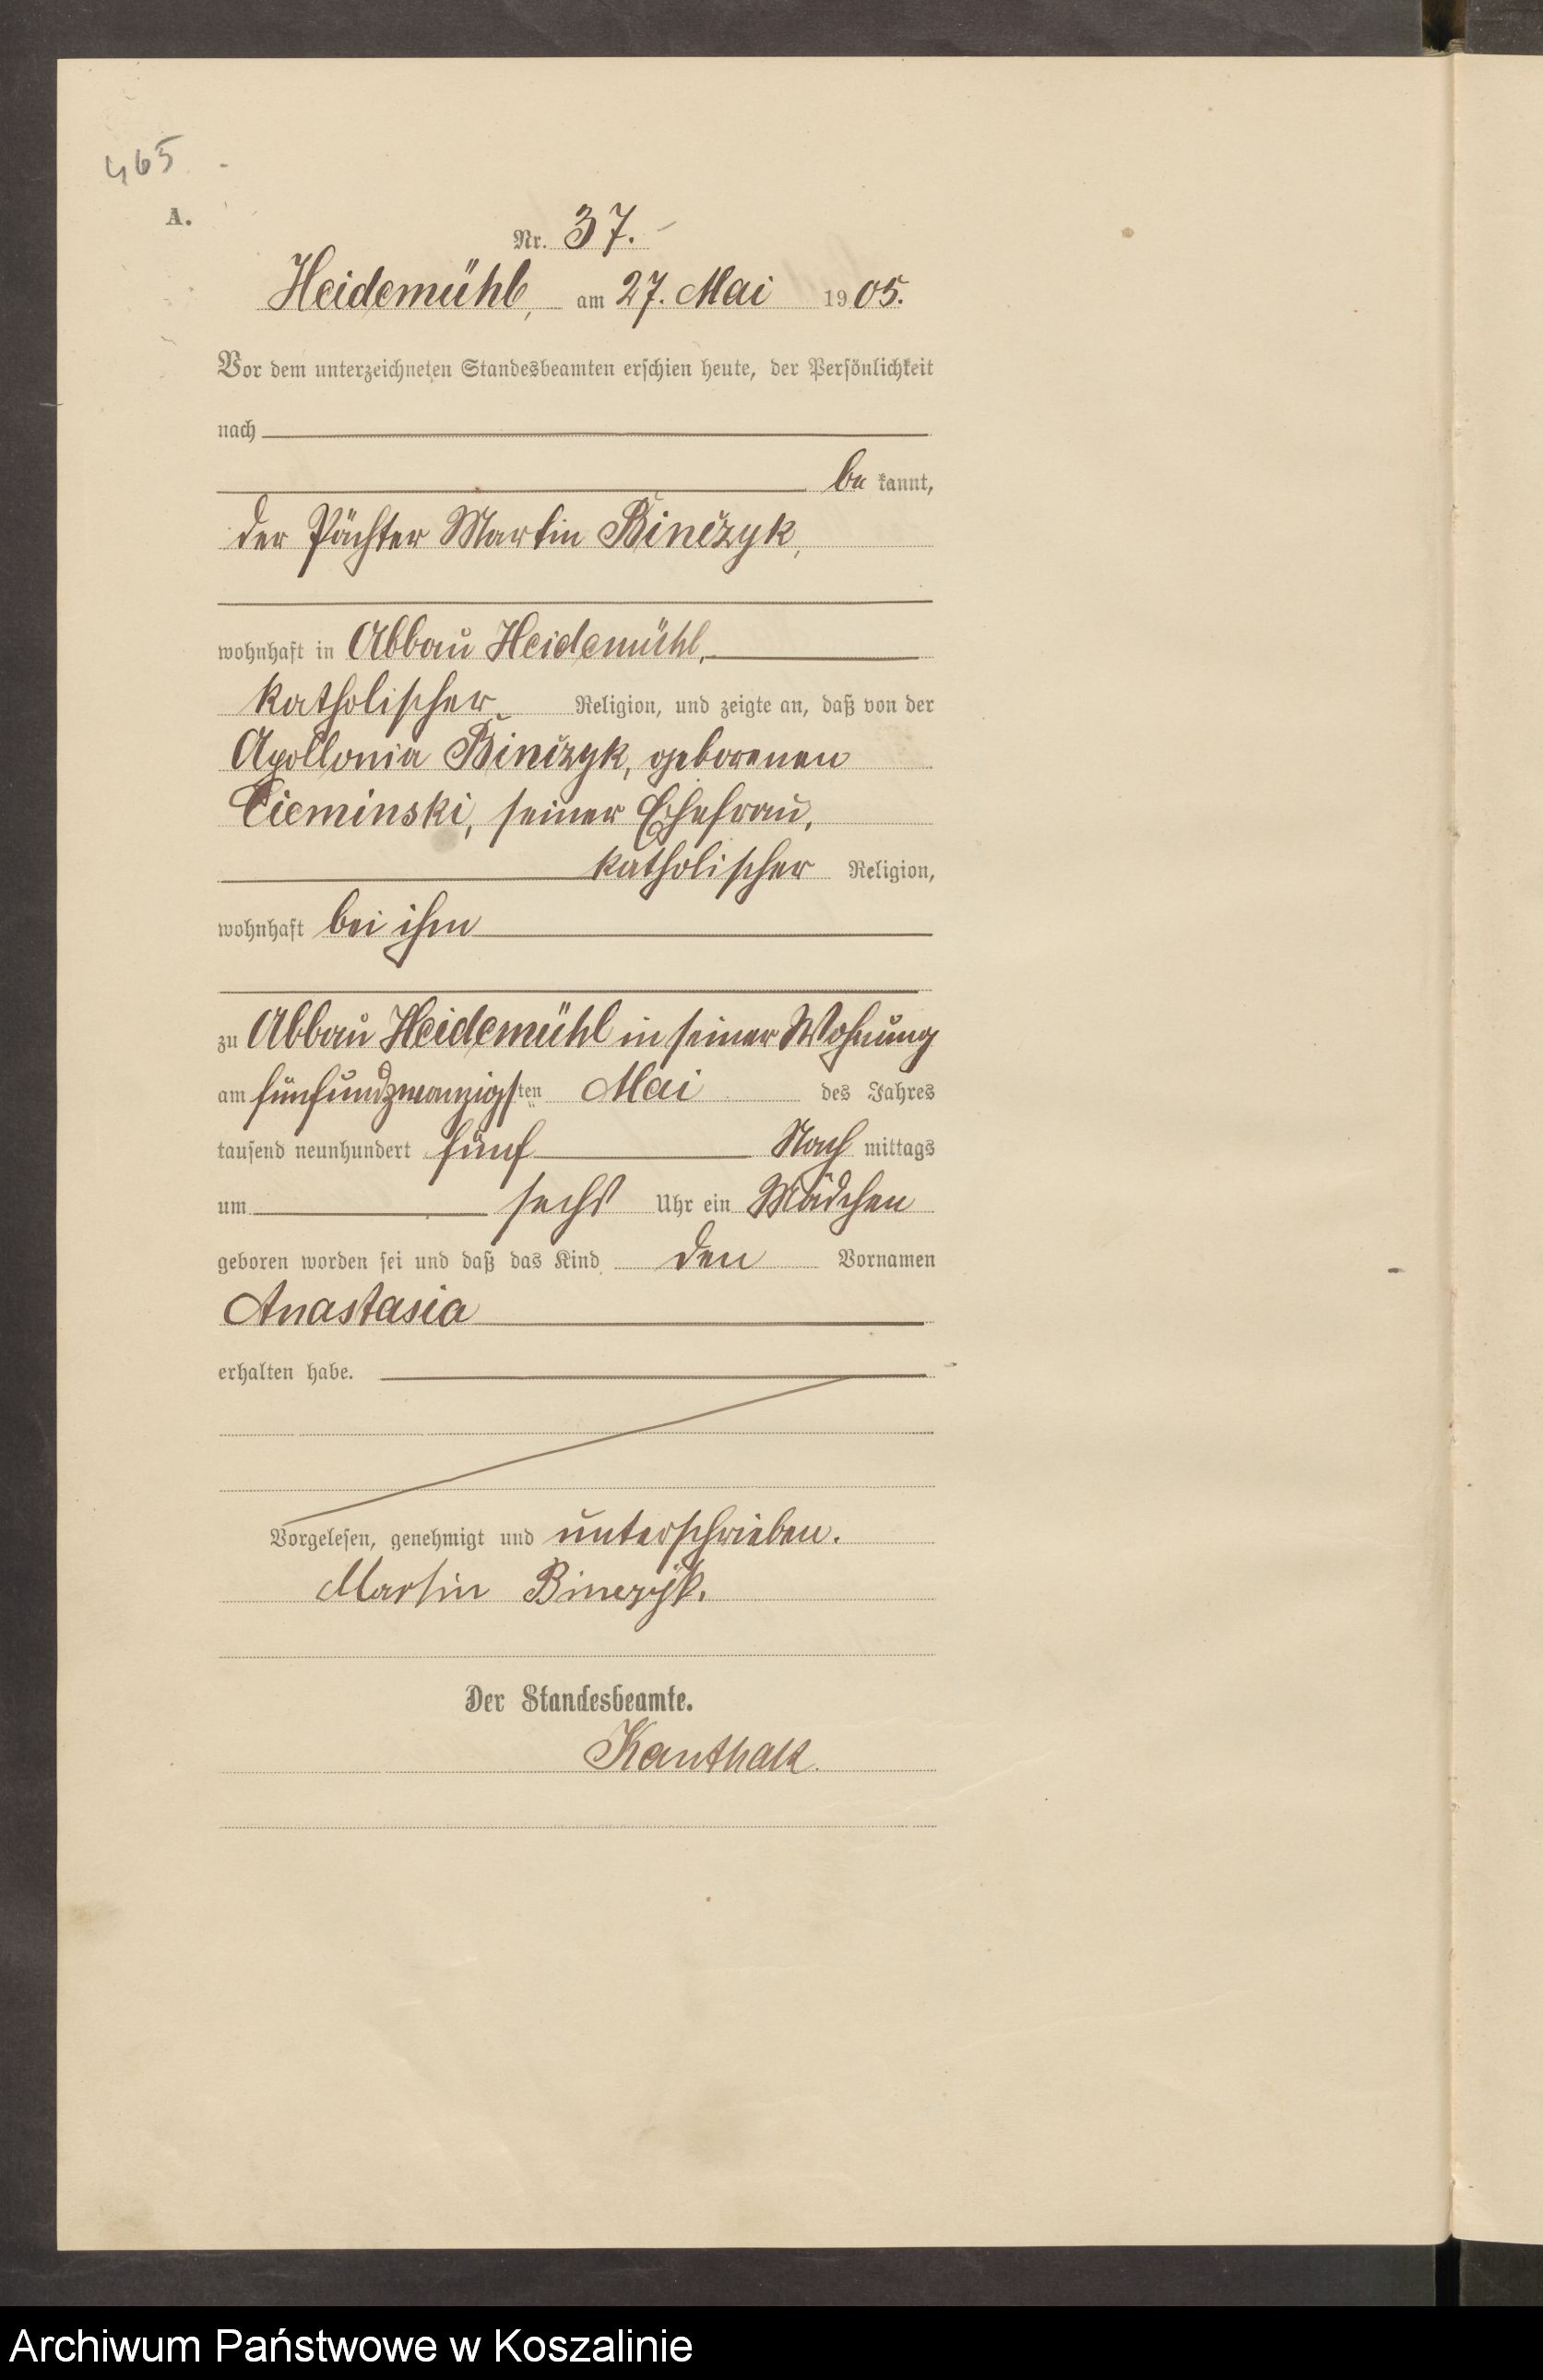 465
A.
Nr. 37.
Heidemühl, am 27. Mai 1905.
Vor dem unterzeichneten Standesbeamten erschien heute, der Persönlichkeit
nach
be kannt,
der Pächter Martin Binczyk,
wohnhaft in Abbau Heidemühl,
katholischer Religion, und zeigte an, daß von der
Apollonia Binczyk, geborenen
Cieminski, seiner Ehefrau,
katholischer Religion,
wohnhaft bei ihm
zu Abbau Heidemühl in seiner Wohnung
am fünfundzwanzigsten Mai des Jahres
tausend neunhundert fünf Nach mittags
um sechs Uhr ein Mädchen
geboren worden sei und daß das Kind den Vornamen
Anastasia
erhalten habe.
Vorgelesen, genehmigt und unterschrieben.
Martin Binczyk.
Der Standesbeamte.
Kanthak.
Archiwum Państwowe w Koszalinie